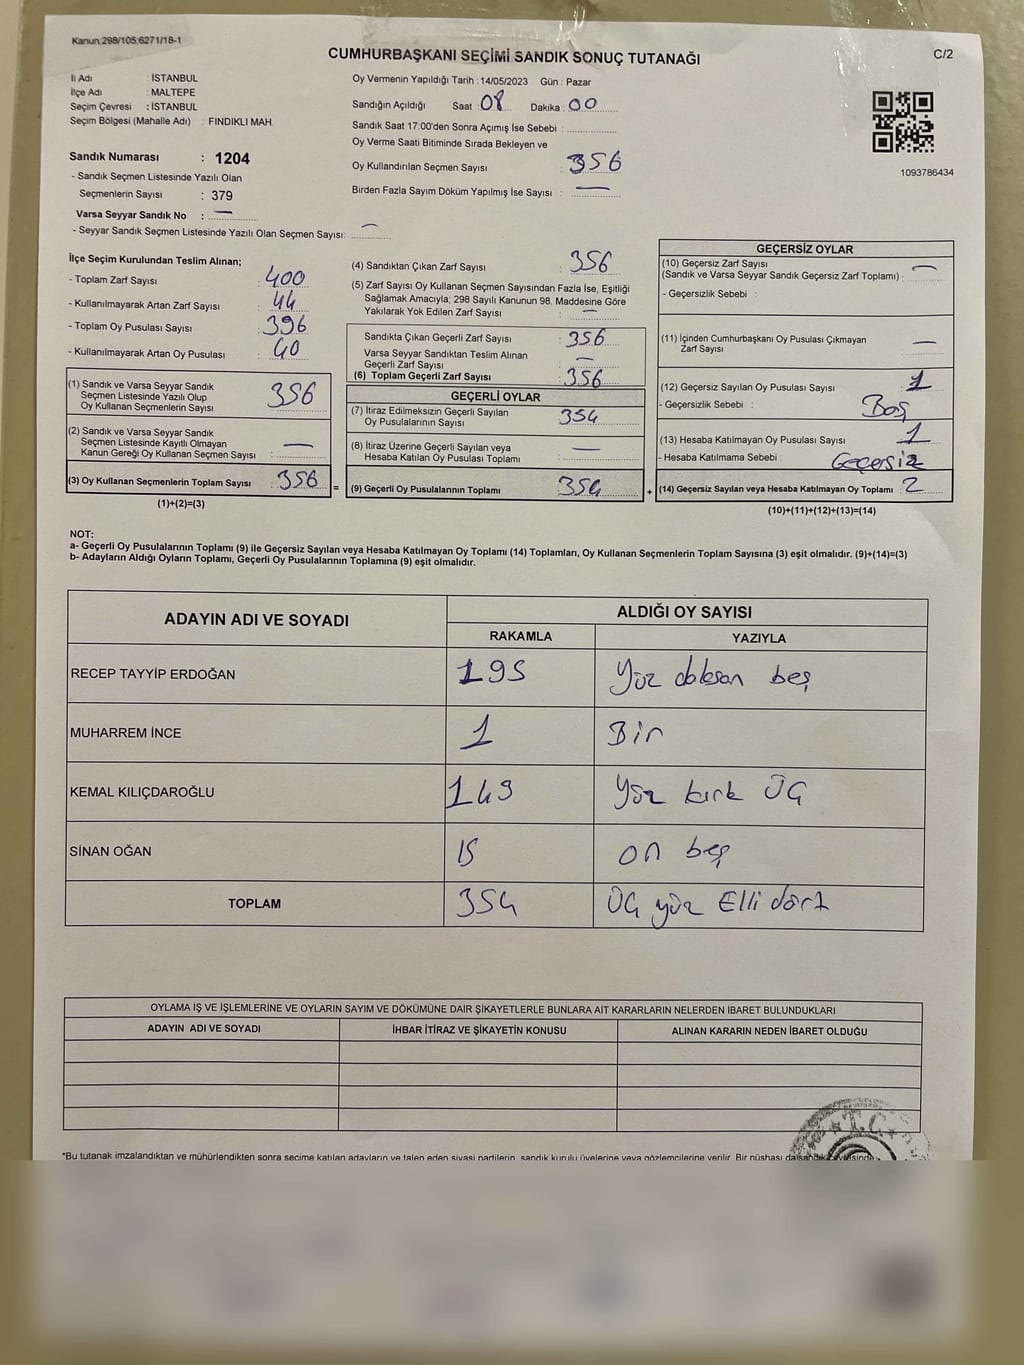 Kanun:298/105;6271/18-1
CUMHURBAŞKANI SEÇİMİ SANDIK SONUÇ TUTANAĞI
C/2
İl Adı : İSTANBUL
İlçe Adı : MALTEPE
Seçim Çevresi : İSTANBUL
Seçim Bölgesi (Mahalle Adı) : FINDIKLI MAH.
Sandık Numarası : 1204
- Sandık Seçmen Listesinde Yazılı Olan
Seçmenlerin Sayısı : 379
Varsa Seyyar Sandık No : —
- Seyyar Sandık Seçmen Listesinde Yazılı Olan Seçmen Sayısı: —
Oy Vermenin Yapıldığı Tarih : 14/05/2023 Gün : Pazar
Sandığın Açıldığı Saat 08 Dakika : 00
Sandık Saat 17:00'den Sonra Açımış İse Sebebi :
Oy Verme Saati Bitiminde Sırada Bekleyen ve
Oy Kullandırılan Seçmen Sayısı : 356
Birden Fazla Sayım Döküm Yapılmış İse Sayısı : —
1093786434
İlçe Seçim Kurulundan Teslim Alınan;
- Toplam Zarf Sayısı : 400
- Kullanılmayarak Artan Zarf Sayısı : 44
- Toplam Oy Pusulası Sayısı : 396
- Kullanılmayarak Artan Oy Pusulası : 40
(1) Sandık ve Varsa Seyyar Sandık
Seçmen Listesinde Yazılı Olup
Oy Kullanan Seçmenlerin Sayısı : 356
(2) Sandık ve Varsa Seyyar Sandık
Seçmen Listesinde Kayıtlı Olmayan
Kanun Gereği Oy Kullanan Seçmen Sayısı : —
(3) Oy Kullanan Seçmenlerin Toplam Sayısı : 356
(1)+(2)=(3)
(4) Sandıktan Çıkan Zarf Sayısı : 356
(5) Zarf Sayısı Oy Kullanan Seçmen Sayısından Fazla İse, Eşitliği
Sağlamak Amacıyla; 298 Sayılı Kanunun 98. Maddesine Göre
Yakılarak Yok Edilen Zarf Sayısı : —
Sandıkta Çıkan Geçerli Zarf Sayısı : 356
Varsa Seyyar Sandıktan Teslim Alınan
Geçerli Zarf Sayısı : —
(6) Toplam Geçerli Zarf Sayısı : 356
GEÇERLİ OYLAR
(7) İtiraz Edilmeksizin Geçerli Sayılan
Oy Pusulalarının Sayısı : 354
(8) İtiraz Üzerine Geçerli Sayılan veya
Hesaba Katılan Oy Pusulası Toplamı : —
= (9) Geçerli Oy Pusulalarının Toplamı : 354
GEÇERSİZ OYLAR
(10) Geçersiz Zarf Sayısı
(Sandık ve Varsa Seyyar Sandık Geçersiz Zarf Toplamı) : —
- Geçersizlik Sebebi :
(11) İçinden Cumhurbaşkanı Oy Pusulası Çıkmayan
Zarf Sayısı : —
(12) Geçersiz Sayılan Oy Pusulası Sayısı : 1
- Geçersizlik Sebebi : Boş
(13) Hesaba Katılmayan Oy Pusulası Sayısı : 1
- Hesaba Katılmama Sebebi : Geçersiz
+ (14) Geçersiz Sayılan veya Hesaba Katılmayan Oy Toplamı : 2
(10)+(11)+(12)+(13)=(14)
NOT:
a- Geçerli Oy Pusulalarının Toplamı (9) ile Geçersiz Sayılan veya Hesaba Katılmayan Oy Toplamı (14) Toplamları, Oy Kullanan Seçmenlerin Toplam Sayısına (3) eşit olmalıdır. (9)+(14)=(3)
b- Adayların Aldığı Oyların Toplamı, Geçerli Oy Pusulalarının Toplamına (9) eşit olmalıdır.
ADAYIN ADI VE SOYADI ALDIĞI OY SAYISI
RAKAMLA YAZIYLA
RECEP TAYYİP ERDOĞAN 195 Yüz doksan beş
MUHARREM İNCE 1 Bir
KEMAL KILIÇDAROĞLU 143 Yüz kırk ÜÇ
SİNAN OĞAN 15 on beş
TOPLAM 354 ÜÇ yüz Elli dört
OYLAMA İŞ VE İŞLEMLERİNE VE OYLARIN SAYIM VE DÖKÜMÜNE DAİR ŞİKAYETLERLE BUNLARA AİT KARARLARIN NELERDEN İBARET BULUNDUKLARI
ADAYIN ADI VE SOYADI İHBAR İTİRAZ VE ŞİKAYETİN KONUSU ALINAN KARARIN NEDEN İBARET OLDUĞU
T.C.
*Bu tutanak imzalandıktan ve mühürlendikten sonra seçime katılan adayların ve talep eden siyasi partilerin, sandık kurulu üyelerine veya gözlemcilerine verilir. Bir nüshası da